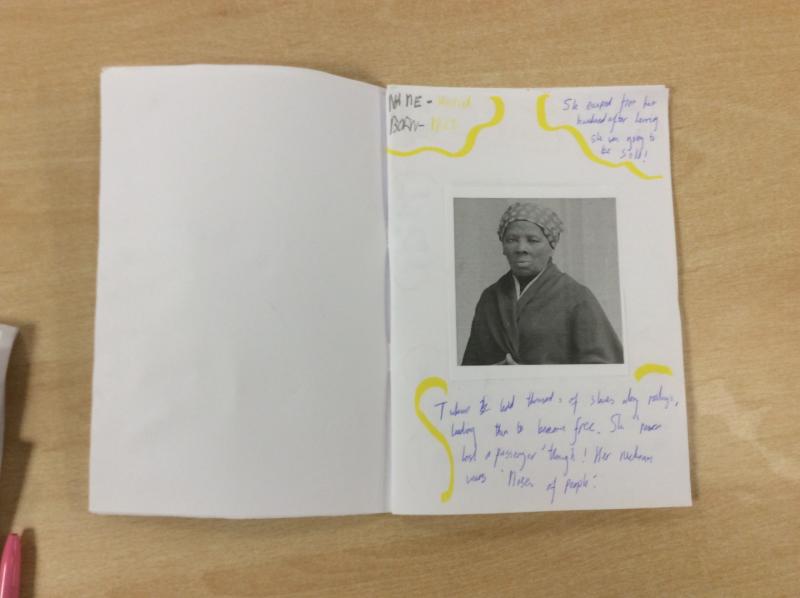 NAME - Harriet
BORN -
She escaped from her
husband after hearing
she was going to
be sold!
Tubman led thousands of slaves along railways,
leading them to become free. She "never
lost a passenger" though! Her nickname
was "Moses of people".